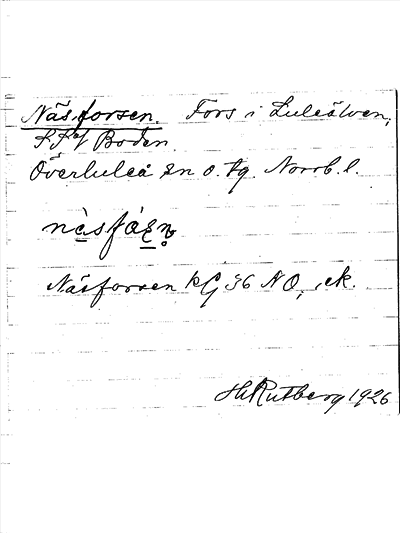 Näsforsen. Fors i Luleälven,
Boden.
Överluleå sn o. tg. Norrb. l.
Näsforsen kG 36 NO, ek.
H Rutberg 1926